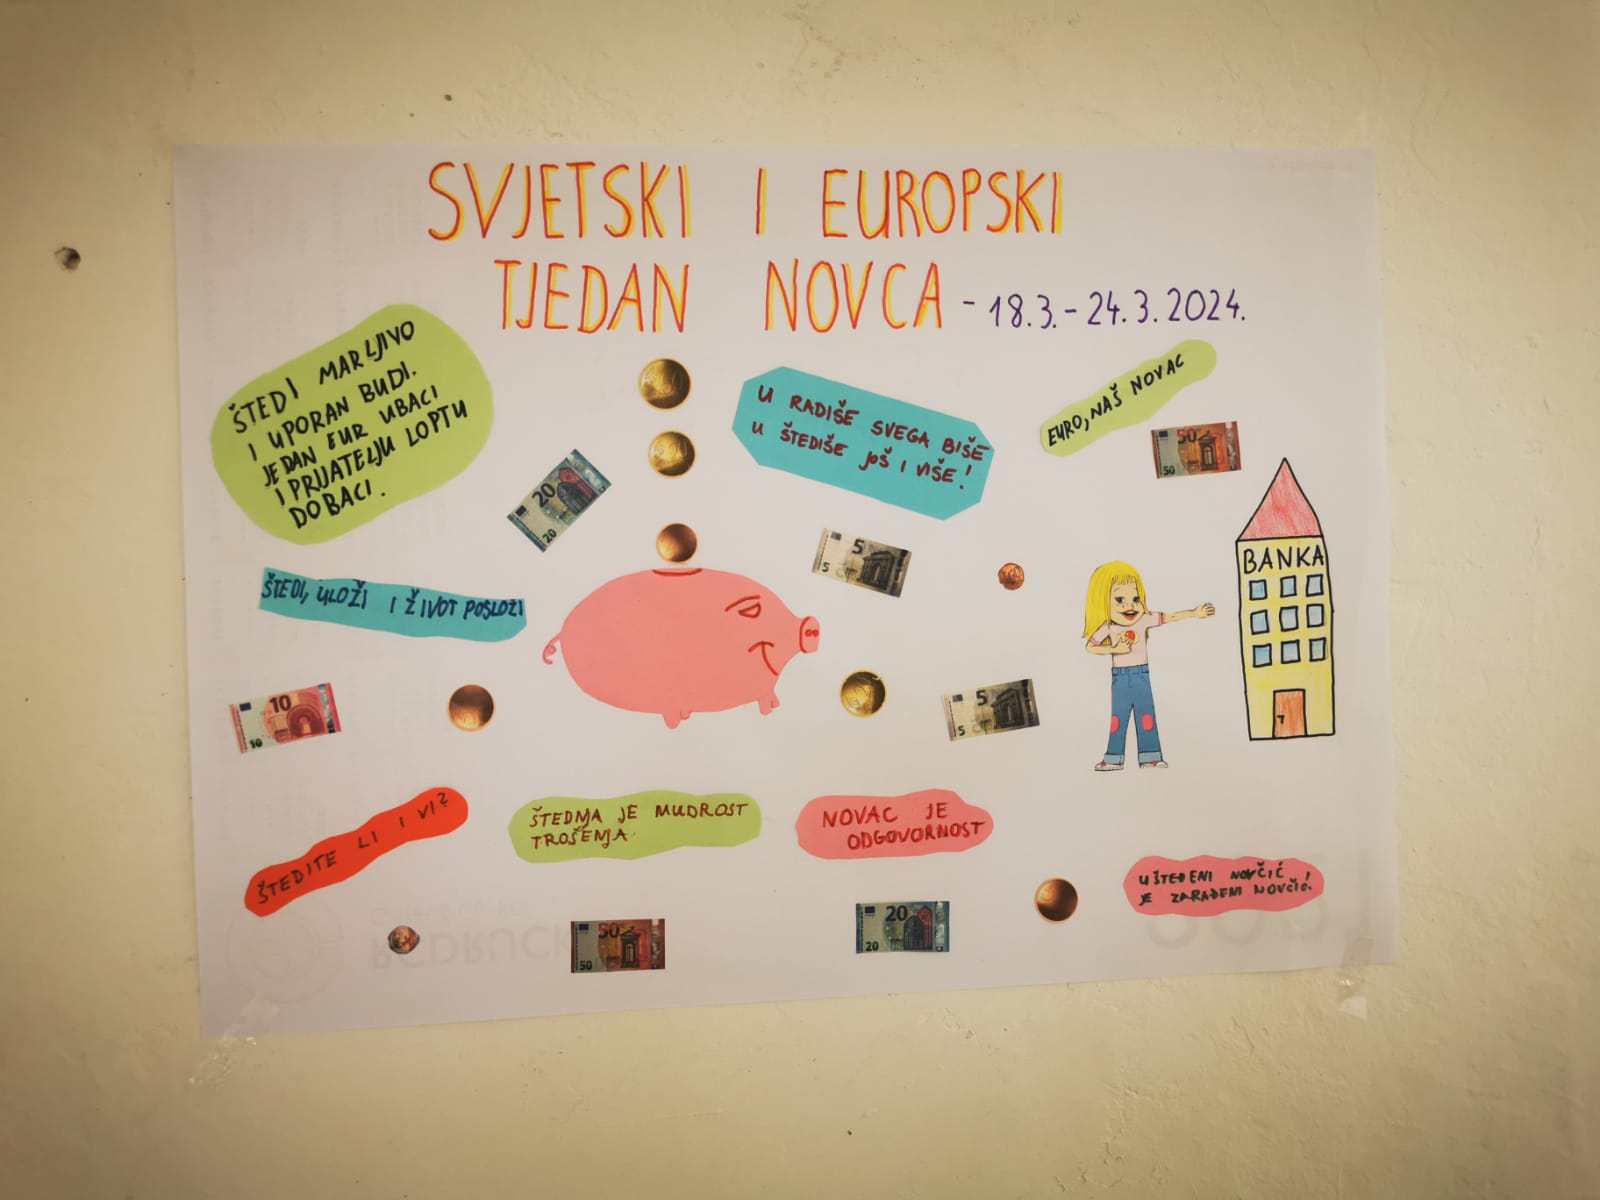 SVJETSKI I EUROPSKI
TJEDAN NOVCA - 18.3.-24.3.2024.
ŠTEDI MARLJIVO
I UPORAN BUDI.
JEDAN EUR UBACI
I PRIJATELJU LOPTU
DOBACI.
U RADIŠE SVEGA BIŠE
U ŠTEDIŠE JOŠ I VIŠE!
EURO, NAŠ NOVAC
50
50
20
20
5
5
BANKA
ŠTEDI, ULOŽI I ŽIVOT POSLOŽI
10
10
5
5
ŠTEDITE LI I VI?
ŠTEDNJA JE MUDROST
TROŠENJA.
NOVAC JE
ODGOVORNOST
UŠTEĐENI NOVČIĆ
JE ZARAĐENI NOVČIĆ!
50
50
20
20